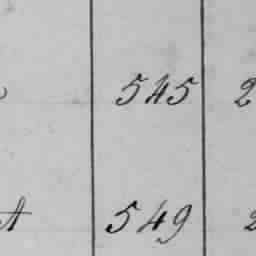 545 2
549 2